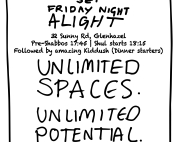 FRIDAY NIGHT
ALIGHT
32 Sunny Rd, Glenhazel
Pre-Shabbos 17:45 | Shul starts 18:15
Followed by amazing Kiddush (Dinner starters)
UNLIMITED
SPACES.
UNLIMITED
POTENTIAL.